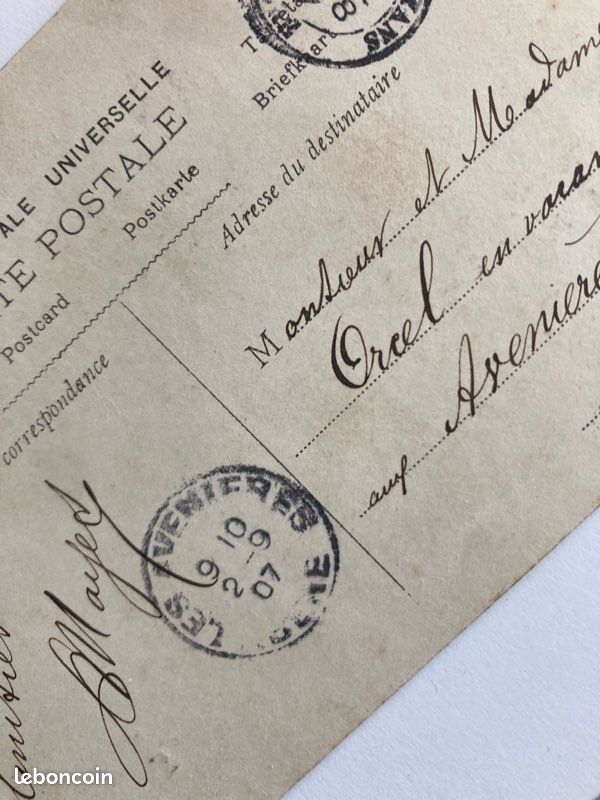 ALE UNIVERSELLE
TE POSTALE
Postcard
Postkarte
Briefkaart
correspondance
Adresse du destinataire
Monsieur et Madame
Orcel en vacan
aux Avenière
LES AVENIERES
9 10
2 -9
07
ISÈRE
leboncoin